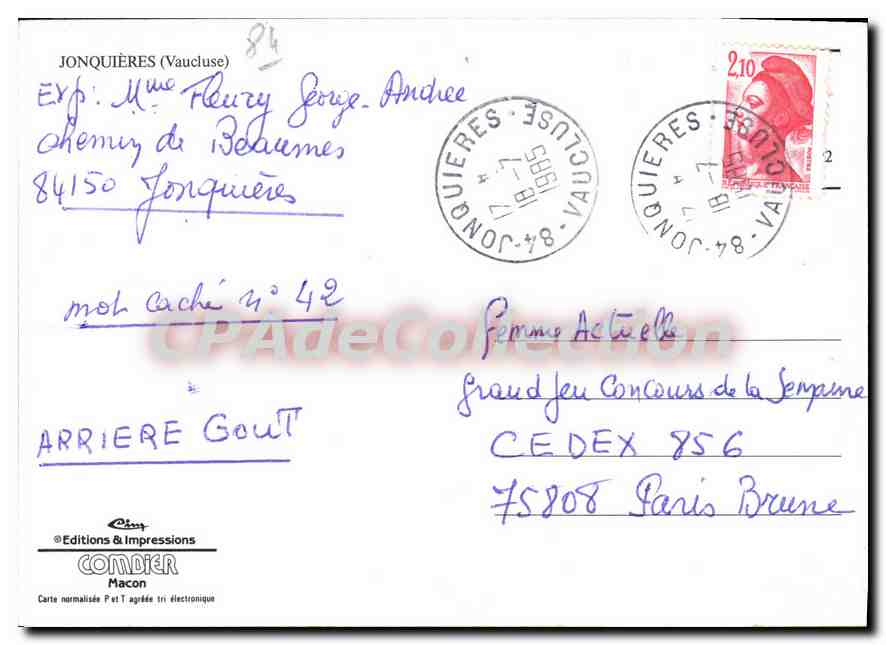 84
JONQUIÈRES (Vaucluse)
Exp: Mme Fleury George-Andrée
Chemin de Beaumes
84150 Jonquières
84-JONQUIERES · VAUCLUSE
17 18-7 1985
84-JONQUIERES · VAUCLUSE
17 18-7 1985
2,10
POSTES
REPUBLIQUE FRANÇAISE
2
mot caché n° 42
CPAdeCollection
ARRIERE GOUT
Femme Actuelle
Grand Jeu Concours de la Semaine
CEDEX 856
75808 Paris Brune
Cim
©Editions & Impressions
COMBIER
Macon
Carte normalisée P et T agréée tri électronique